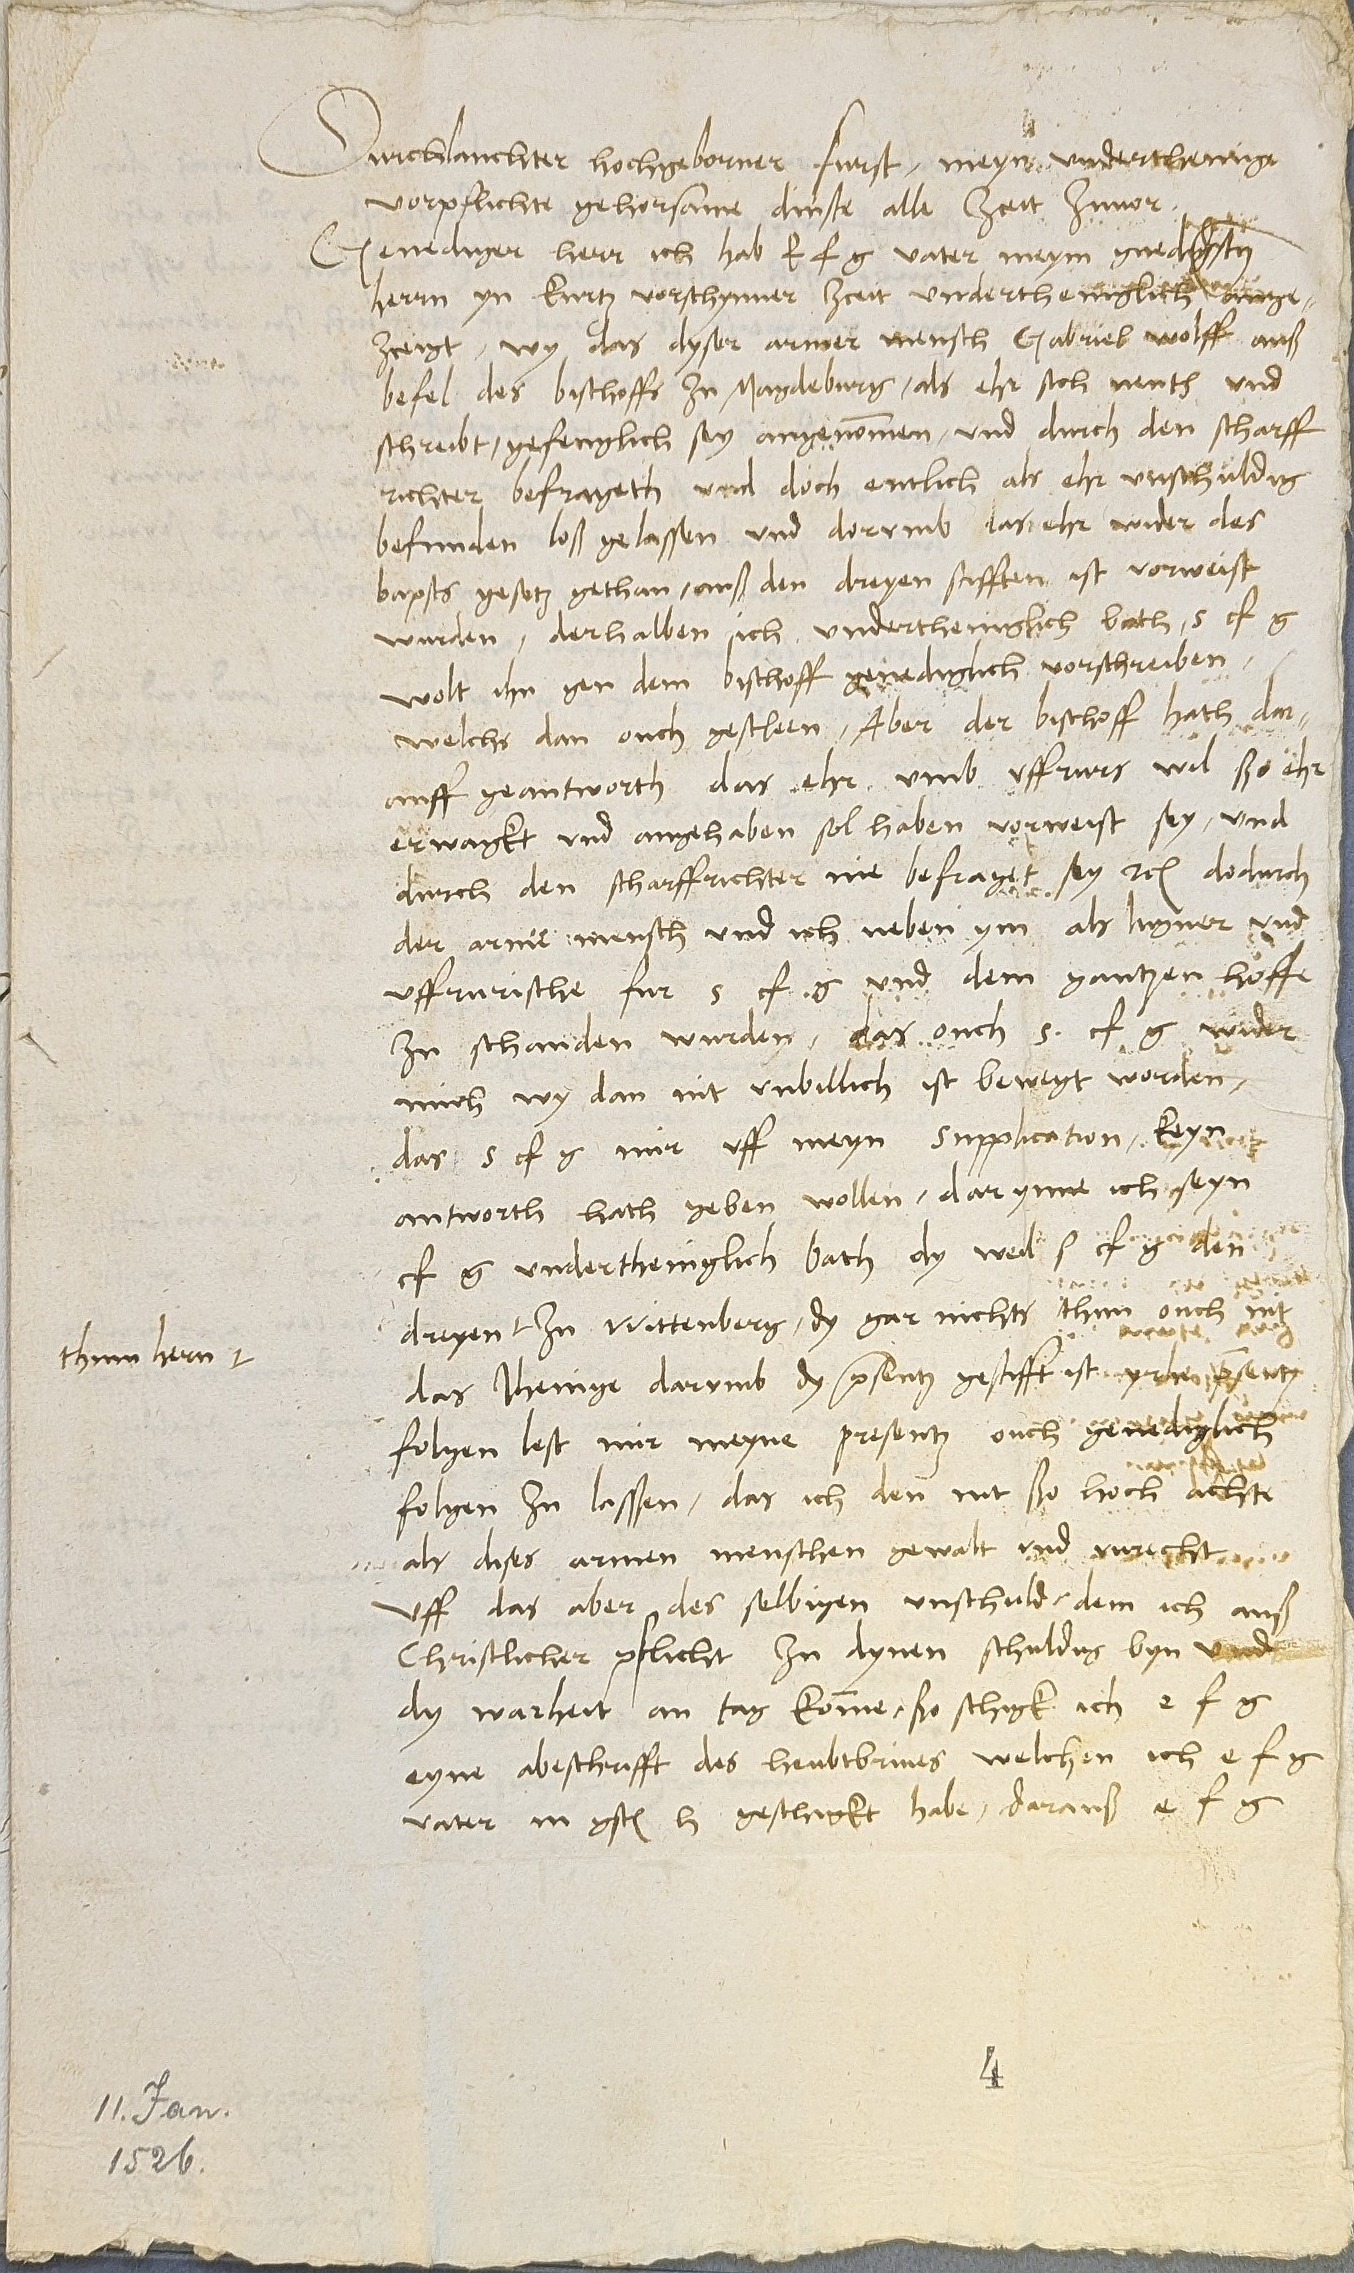 Durchlauchter hochgeborner furst, meyn underthenige
vorpflichte gehorsame dinste alle Zceit Zuuor.
Genediger herr ich hab E f g vater meym gnedigsten
herrn yn kurtz vorschynner Zceit undertheniglich ange-
Zceigt, wy das dyser armer mensch Gabriel wolff auß
befel des bischoffs Zu Magdeburg, als ehr sich nenth und
schreibt, gefenglich sey angenom̄en, und durch den scharff
richter befrageth und doch entlich als ehr unschuldig
befunden loß gelassen und dorumb das ehr wider des
bapsts gesetz gethan, auß den dreyen stifften ist vorweist
wurden, derhalben ich undertheniglich bath, s cf g
wolt ihn gen dem bischoff genediglich vorschreiben,
welchs dan ouch gescheen, Aber der bischoff hath dar-
auff geantworth das ehr umb uffrurs wil sso ehr
erwagkt und angehaben sol haben vorweist sey, und
durch den scharffrichter nie befraget sey rc dodurch
der arme mensch und ich neben ym als lugner und
uffrurische fur s cf g und dem gantzen hoffe
Zu schanden wurden, das ouch s. cf g wider
mich wy dan nit unbillich ist bewegt worden,
das s cf g mir uff meyn supplication, keyn
antworth hath geben wollen, darynne ich seyn
cf g undertheniglich bath dy weil s cf g den
dreyen Zu Wittenberg, dy gar nichts thun ouch nit
thum hern
das Jhenige darumb dy p̄sentz gestifft ist yrhe p̄sentz
folgen lest mir meyne presentz ouch genediglich
folgen Zu lassen, das ich den nit sso hoch achte
als dises armen menschen gewalt und unrecht
Uff das aber des selbigen unschuld, dem ich auß
Christlicher pflicht Zu dynen schuldig byn und
dy warheit an tag kom̄e, sso schigk ich e f g
eyne abeschrifft des heubtbriues welchen ich e f g
vater m gst h geschigkt habe, darauß e f g
4
11. Jan.
1526.